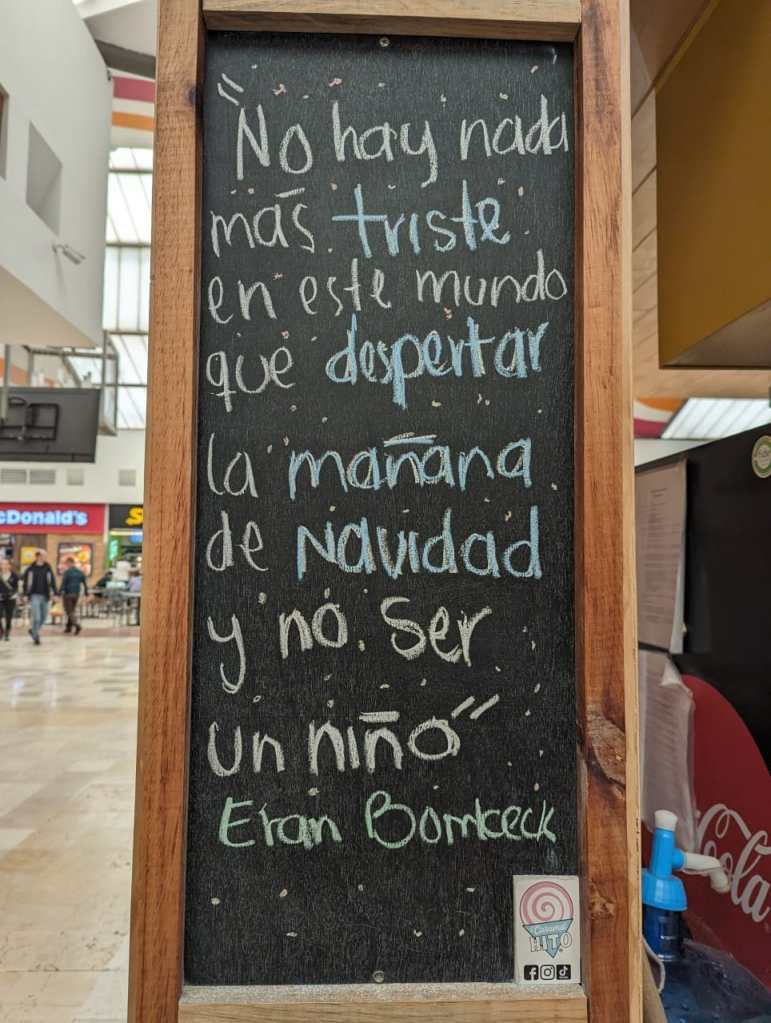 "No hay nada
más triste
en este mundo
que despertar
la mañana
de Navidad
y no ser
un niño"
Eran Bomkeck
Caramel
HITO
cDonald's
S
Cola